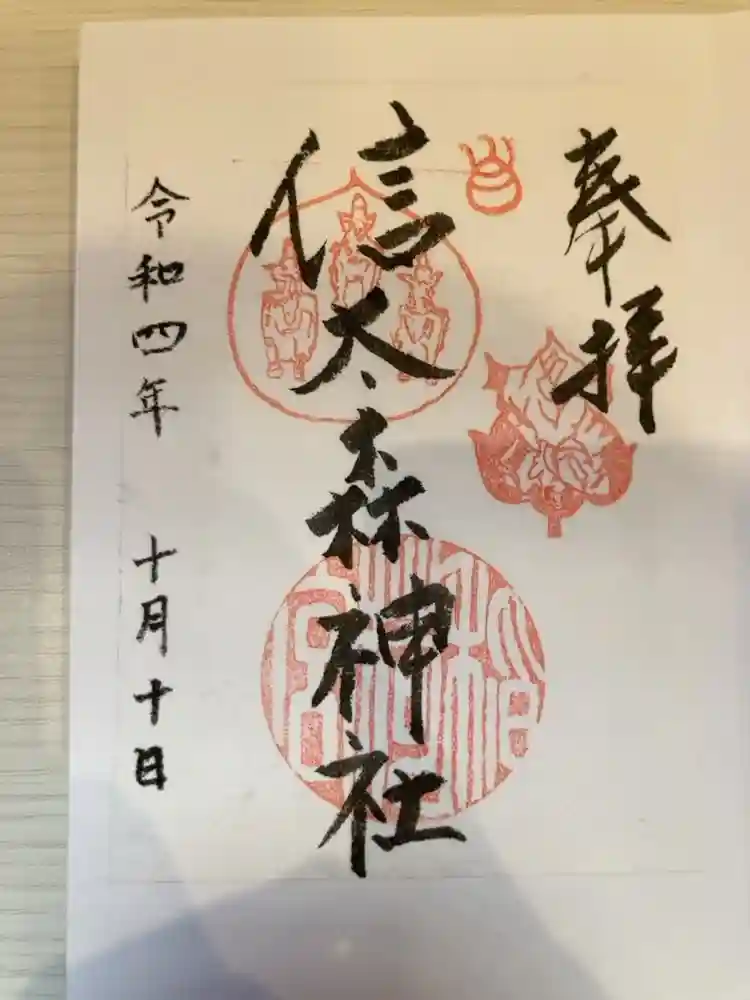 奉拝
信太森神社
令和四年 十月十日